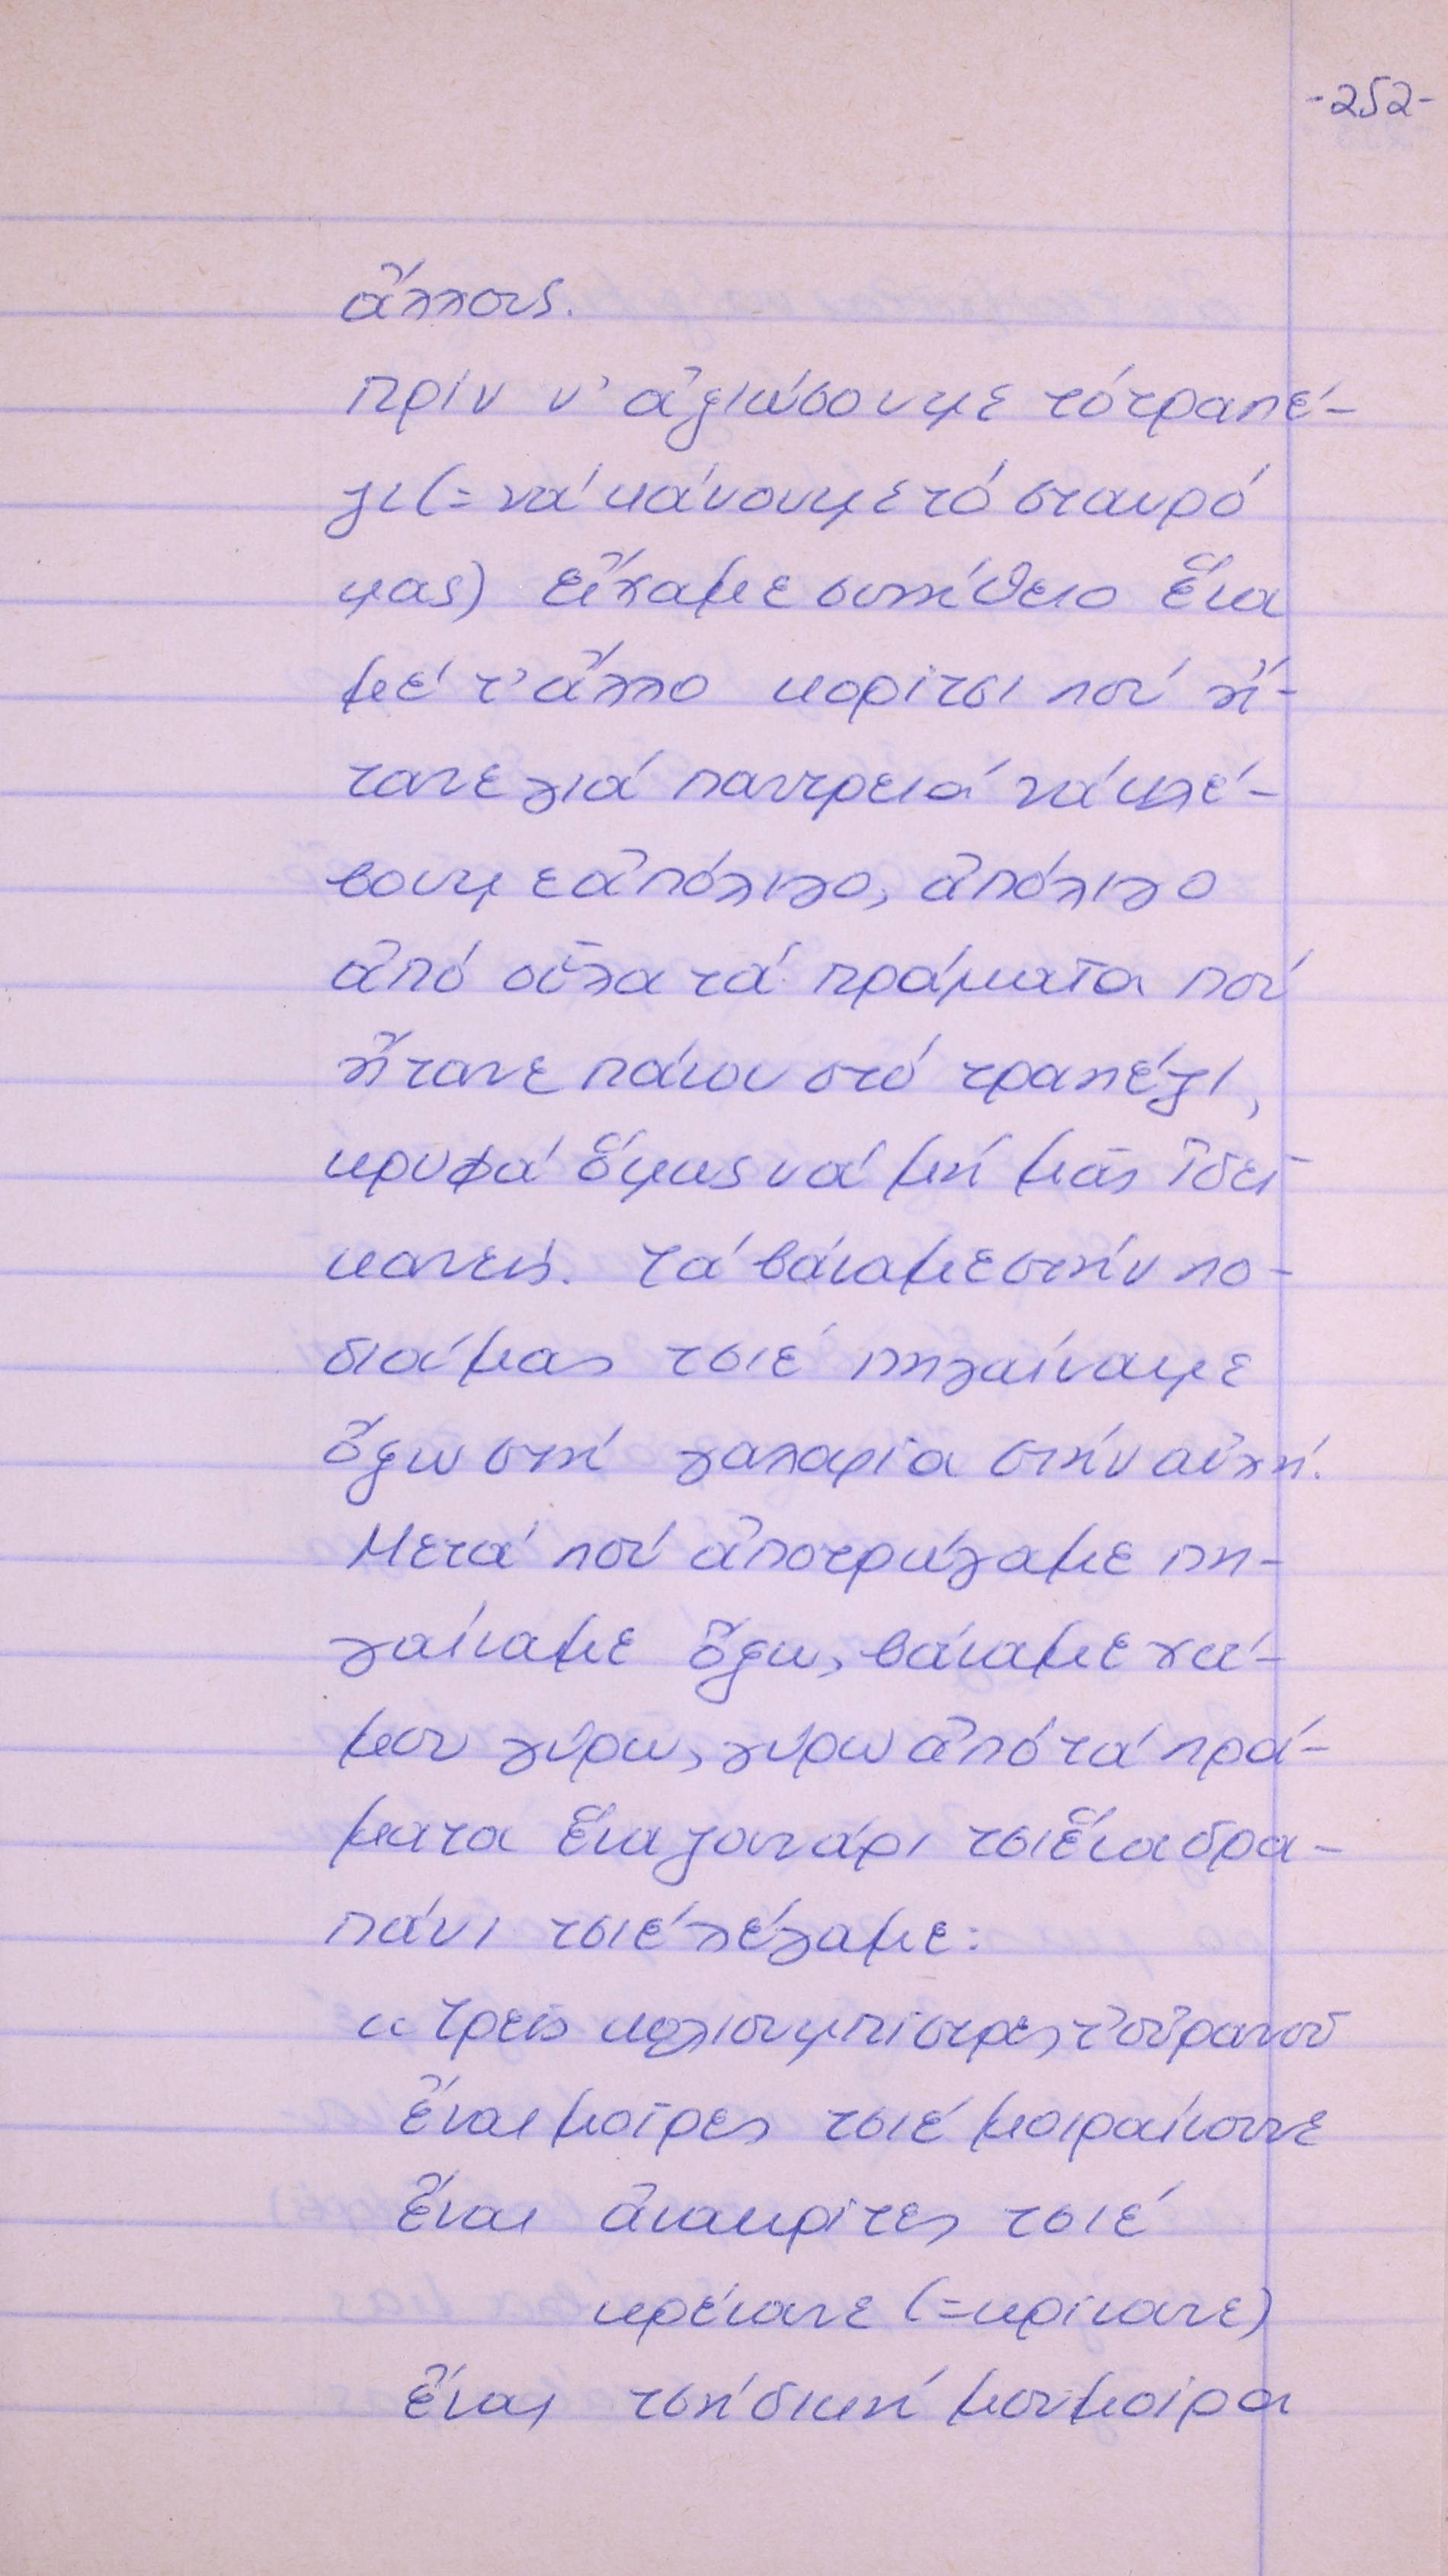 -252-
ἄλλους.
Πρίν ν' ἀξιώσουμε τό τραπέ-
ζι (= νά κάνουμε τό σταυρό
μας) εἴχαμε συνήθειο ἕνα
μέ τ' ἄλλο κορίτσι πού ἤ-
τανε γιά παντρειά νά κλέ-
βουμε ἀπόλιγο, ἀπόλιγο
ἀπό οὗλα τά πράματα πού
ἤτανε πάνου στό τραπέζι,
κρυφά ὅμως νά μή μᾶς ἰδεῖ
κανείς. Τά βάναμε στήν πο-
διά μας τσιέ πηγαίναμε
ὄξω στή γαλαρία στήν αὐλή.
Μετά πού ἀποτρώγαμε πη-
γαίναμε ὄξω, βάναμε χά-
μου γύρω, γύρω ἀπό τά πρά-
ματα ἕνα ζουνάρι τσιέ ἕνα δρα-
πάνι τσιέ λέγαμε:
« Τρεῖς κολιουμπίστρες τ' οὐρανοῦ
ἔναι μοῖρες τσιέ μοιραίνουνε
ἔναι ἀνακρίτες τσιέ
κρένανε (=κρίνανε)
ἔναι τσή δική μου μοίρα